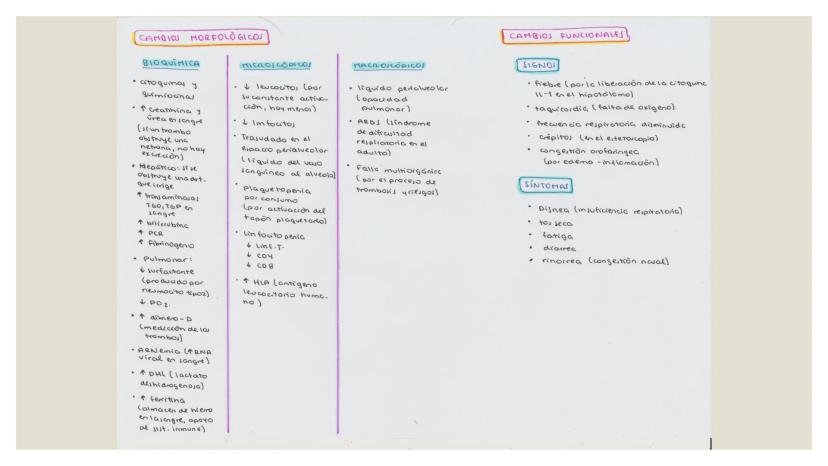 CAMBIOS MORFOLÓGICOS
BIOQUÍMICA
• citoquinas y
quimiocinas
• ↑ creatinina y
úrea en sangre
(si un trombo
obstruye una
nefrona, no hay
excreción)
• Hepático: si se
obstruye una art.
que irriga
↑ transaminasas
TGO, TGP en
sangre
↑ bilirrubina
↑ PCR
↑ Fibrinógeno
• Pulmonar:
↓ surfactante
(producido por
neumocito tipo 2)
↓ PO2.
• ↑ dímero-D
(medición de los
trombos)
• ARNemia (↑ RNA
viral en sangre)
• ↑ DHL (lactato
deshidrogenasa)
• ↑ ferritina
(almacén de hierro
en la sangre, apoyo
al sist. inmune)
MICROSCÓPICOS
• ↓ leucocitos (por
su constante activa-
ción, hay menos)
• ↓ linfocitos
• Trasudado en el
espacio perialveolar
(líquido del vaso
sanguíneo al alveolo)
• plaquetopenia
por consumo
(por activación del
tapón plaquetario)
• linfocitopenia
↓ Linf. T.
↓ CD4
↓ CD8
• ↑ HLA (antígeno
leucocitario huma-
no)
MACROSCÓPICOS
• líquido perialveolar
(opacidad
pulmonar)
• ARDS (síndrome
de dificultad
respiratoria en el
adulto)
• Falla multiorgánica
(por el proceso de
trombosis y riesgos)
CAMBIOS FUNCIONALES
SIGNOS
• fiebre (por la liberación de la citoquina
IL-1 en el hipotálamo)
• taquicardia (falta de oxígeno)
• frecuencia respiratoria disminuida
• crépitos (en el estetoscopio)
• congestión orofaringea
(por edema - inflamación)
SÍNTOMAS
• Disnea (insuficiencia respiratoria)
• tos seca
• fatiga
• diarrea
• rinorrea (congestión nasal)